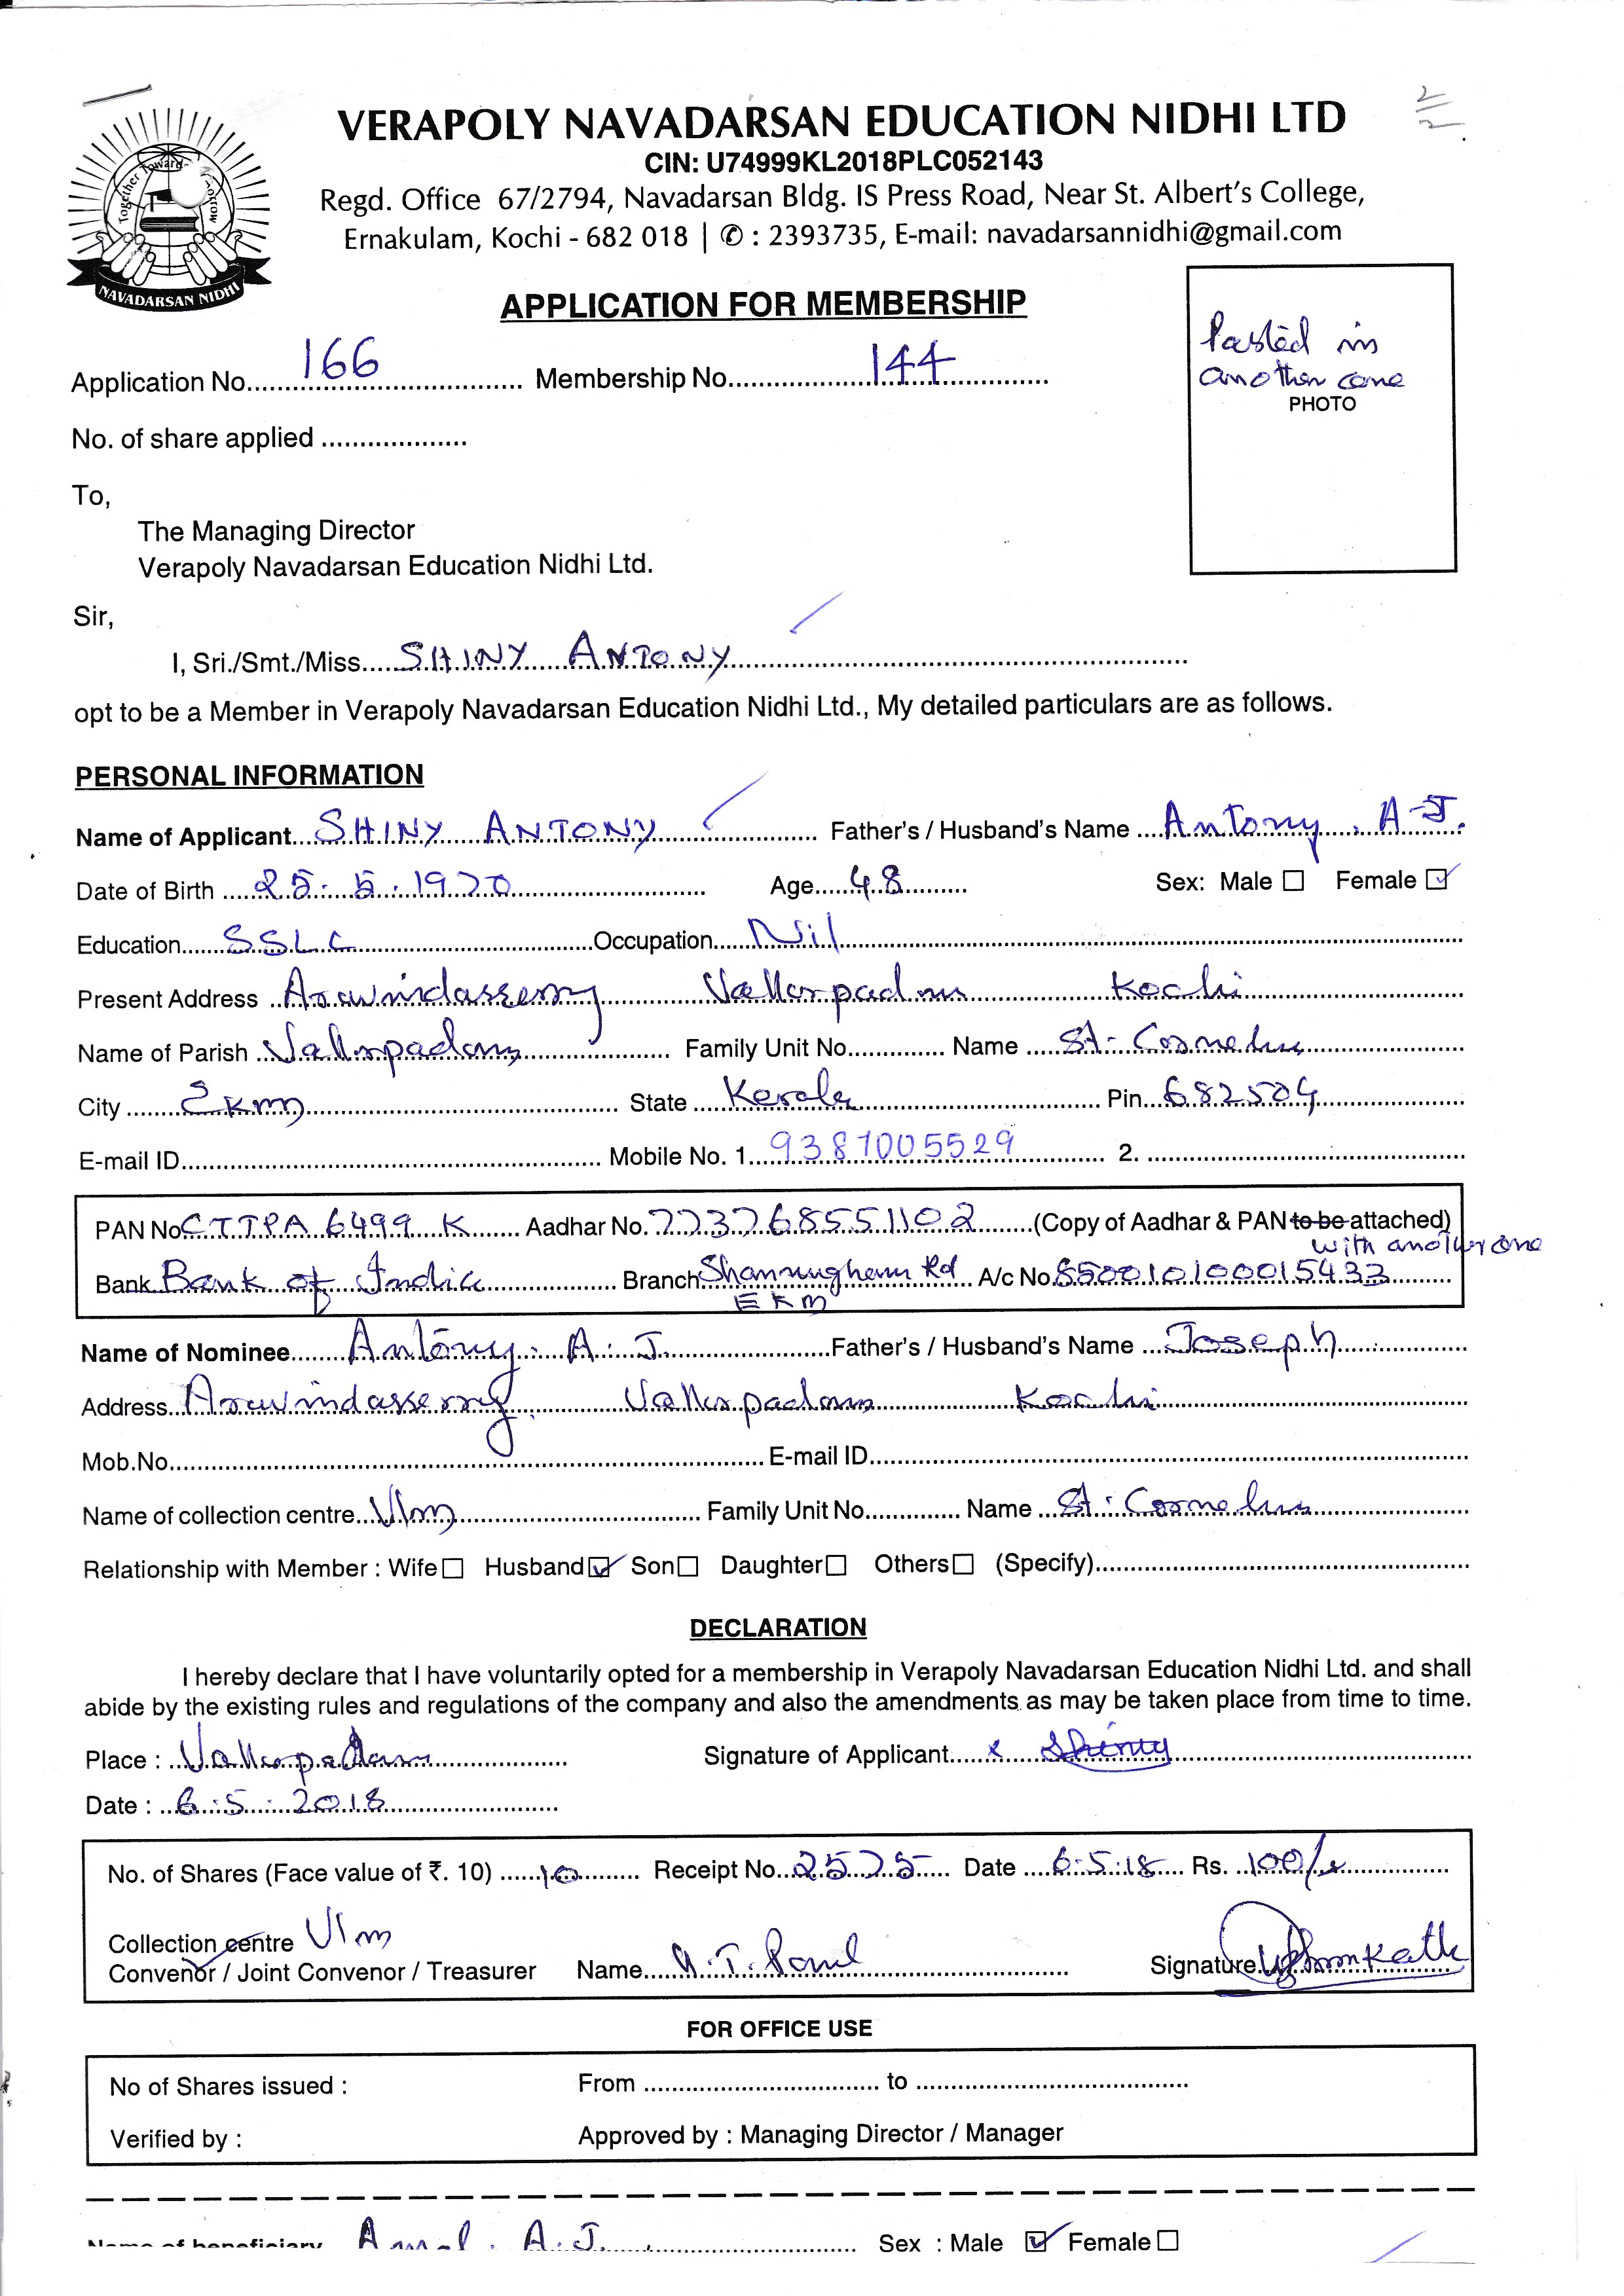 VERAPOLY NAVADARSAN EDUCATION NIDHI LTD
CIN: U74999KL2018PLC052143
Regd. Office 67/2794, Navadarsan Bldg. IS Press Road, Near St. Albert's College,
Ernakulam, Kochi - 682 018 | ✆ : 2393735, E-mail: navadarsannidhi@gmail.com
Together Towards
NAVADARSAN NIDHI
APPLICATION FOR MEMBERSHIP
Pasted in
another one
PHOTO
Application No. 166 Membership No. 144
No. of share applied
To,
The Managing Director
Verapoly Navadarsan Education Nidhi Ltd.
Sir,
I, Sri./Smt./Miss. SHINY ANTONY
opt to be a Member in Verapoly Navadarsan Education Nidhi Ltd., My detailed particulars are as follows.
PERSONAL INFORMATION
Name of Applicant SHINY ANTONY Father's / Husband's Name Antony . A-J.
Date of Birth 25. 5. 1970 Age 48 Sex: Male Female
Education SSLC Occupation Nil
Present Address Aravindasserry Vallarpadam Kochi
Name of Parish Vallarpadam Family Unit No. Name St- Cornelius
City Ekm State Kerala Pin 682504
E-mail ID Mobile No. 1. 9387005529 2.
PAN No CTTPA 6499 K Aadhar No. 773768551102 (Copy of Aadhar & PAN to be attached)
with another one
Bank Bank of India Branch Shanmugham Rd A/c No. 850010100015433
EKM
Name of Nominee Antony. A. J. Father's / Husband's Name Joseph
Address Aravindasserry Vallarpadam Kochi
Mob.No. E-mail ID
Name of collection centre Vlm Family Unit No. Name St. Cornelius
Relationship with Member : Wife Husband Son Daughter Others (Specify)
DECLARATION
I hereby declare that I have voluntarily opted for a membership in Verapoly Navadarsan Education Nidhi Ltd. and shall
abide by the existing rules and regulations of the company and also the amendments as may be taken place from time to time.
Place : Vallarpadam Signature of Applicant x Shiny
Date : 6.5.2018
No. of Shares (Face value of ₹. 10) 10 Receipt No. 2575 Date 6.5.18 Rs. 100/-
Collection centre Vlm
Convenor / Joint Convenor / Treasurer Name Paul Signature
FOR OFFICE USE
No of Shares issued : From to
Verified by : Approved by : Managing Director / Manager
Name of beneficiary Amal. A.J. Sex : Male Female